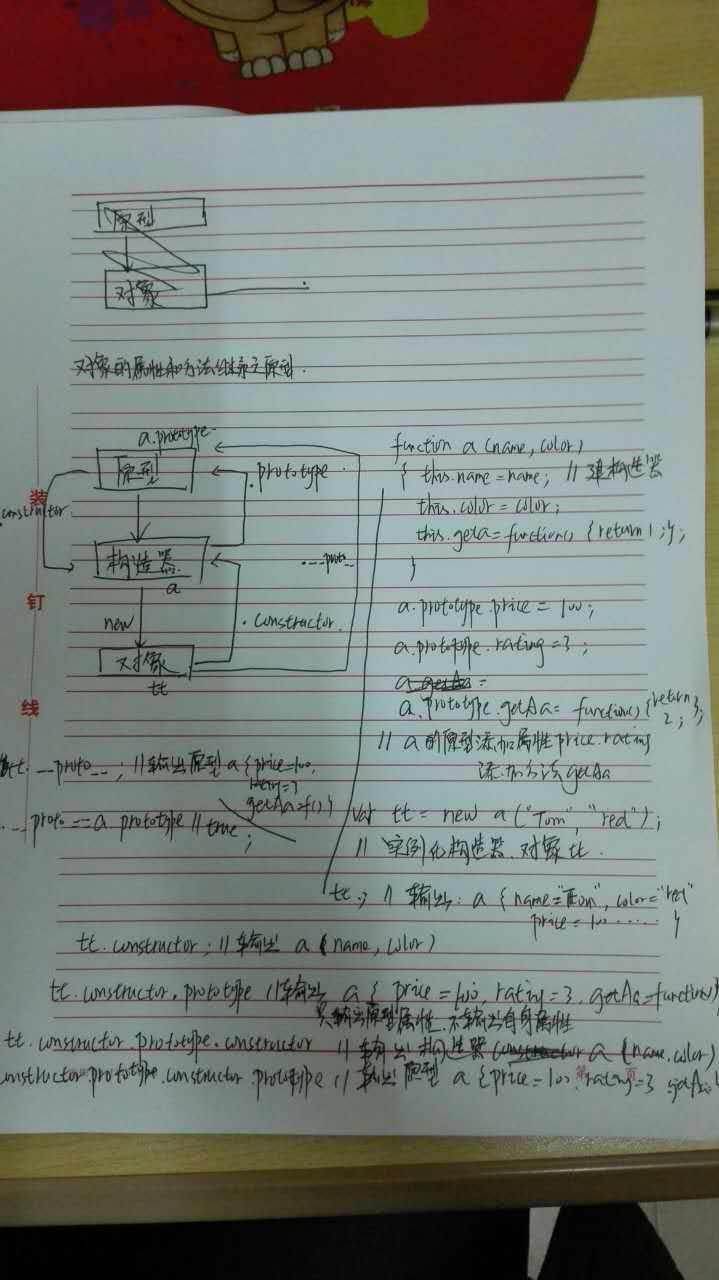 原型
对象
对象的属性和方法继承之原型.
a.prototype
原型
.prototype
constructor
构造器
a
.__proto__
new
.constructor
对象
tt
装
钉
线
function a (name, color)
{ this.name = name; // 建构造器
this.color = color;
this.geta = function() { return 1; };
}
a.prototype.price = 100;
a.prototype.rating = 3;
a.getAa =
a.prototype.getAa = function() { return 2; };
// a的原型添加属性price.rating
添加方法getAa
var tt = new a ("Tom", "red");
// 实例化构造器.对象tt.
tt.; // 输出: a { name="Tom", color="red"
price = 100 ...... }
tt.__proto__; // 输出原型 a { price=100,
rating=3
getAa=f() }
.__proto == a.prototype // true;
tt.constructor; // 输出 a (name, color)
tt.constructor.prototype // 输出 a { price = 100, rating=3. getAa=function()}
只输出原型属性.不输出自身属性
tt.constructor.prototype.constructor // 输出构造器 constructor a (name.color)
onstructor.prototype.constructor.prototype // 输出原型 a { price=100 rating=3 getAa